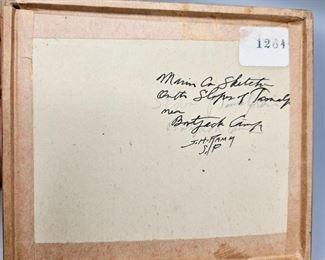 1264
Marin Co Sketch
On the Slopes of Tamalp
near
Bootjack Camp
S.F